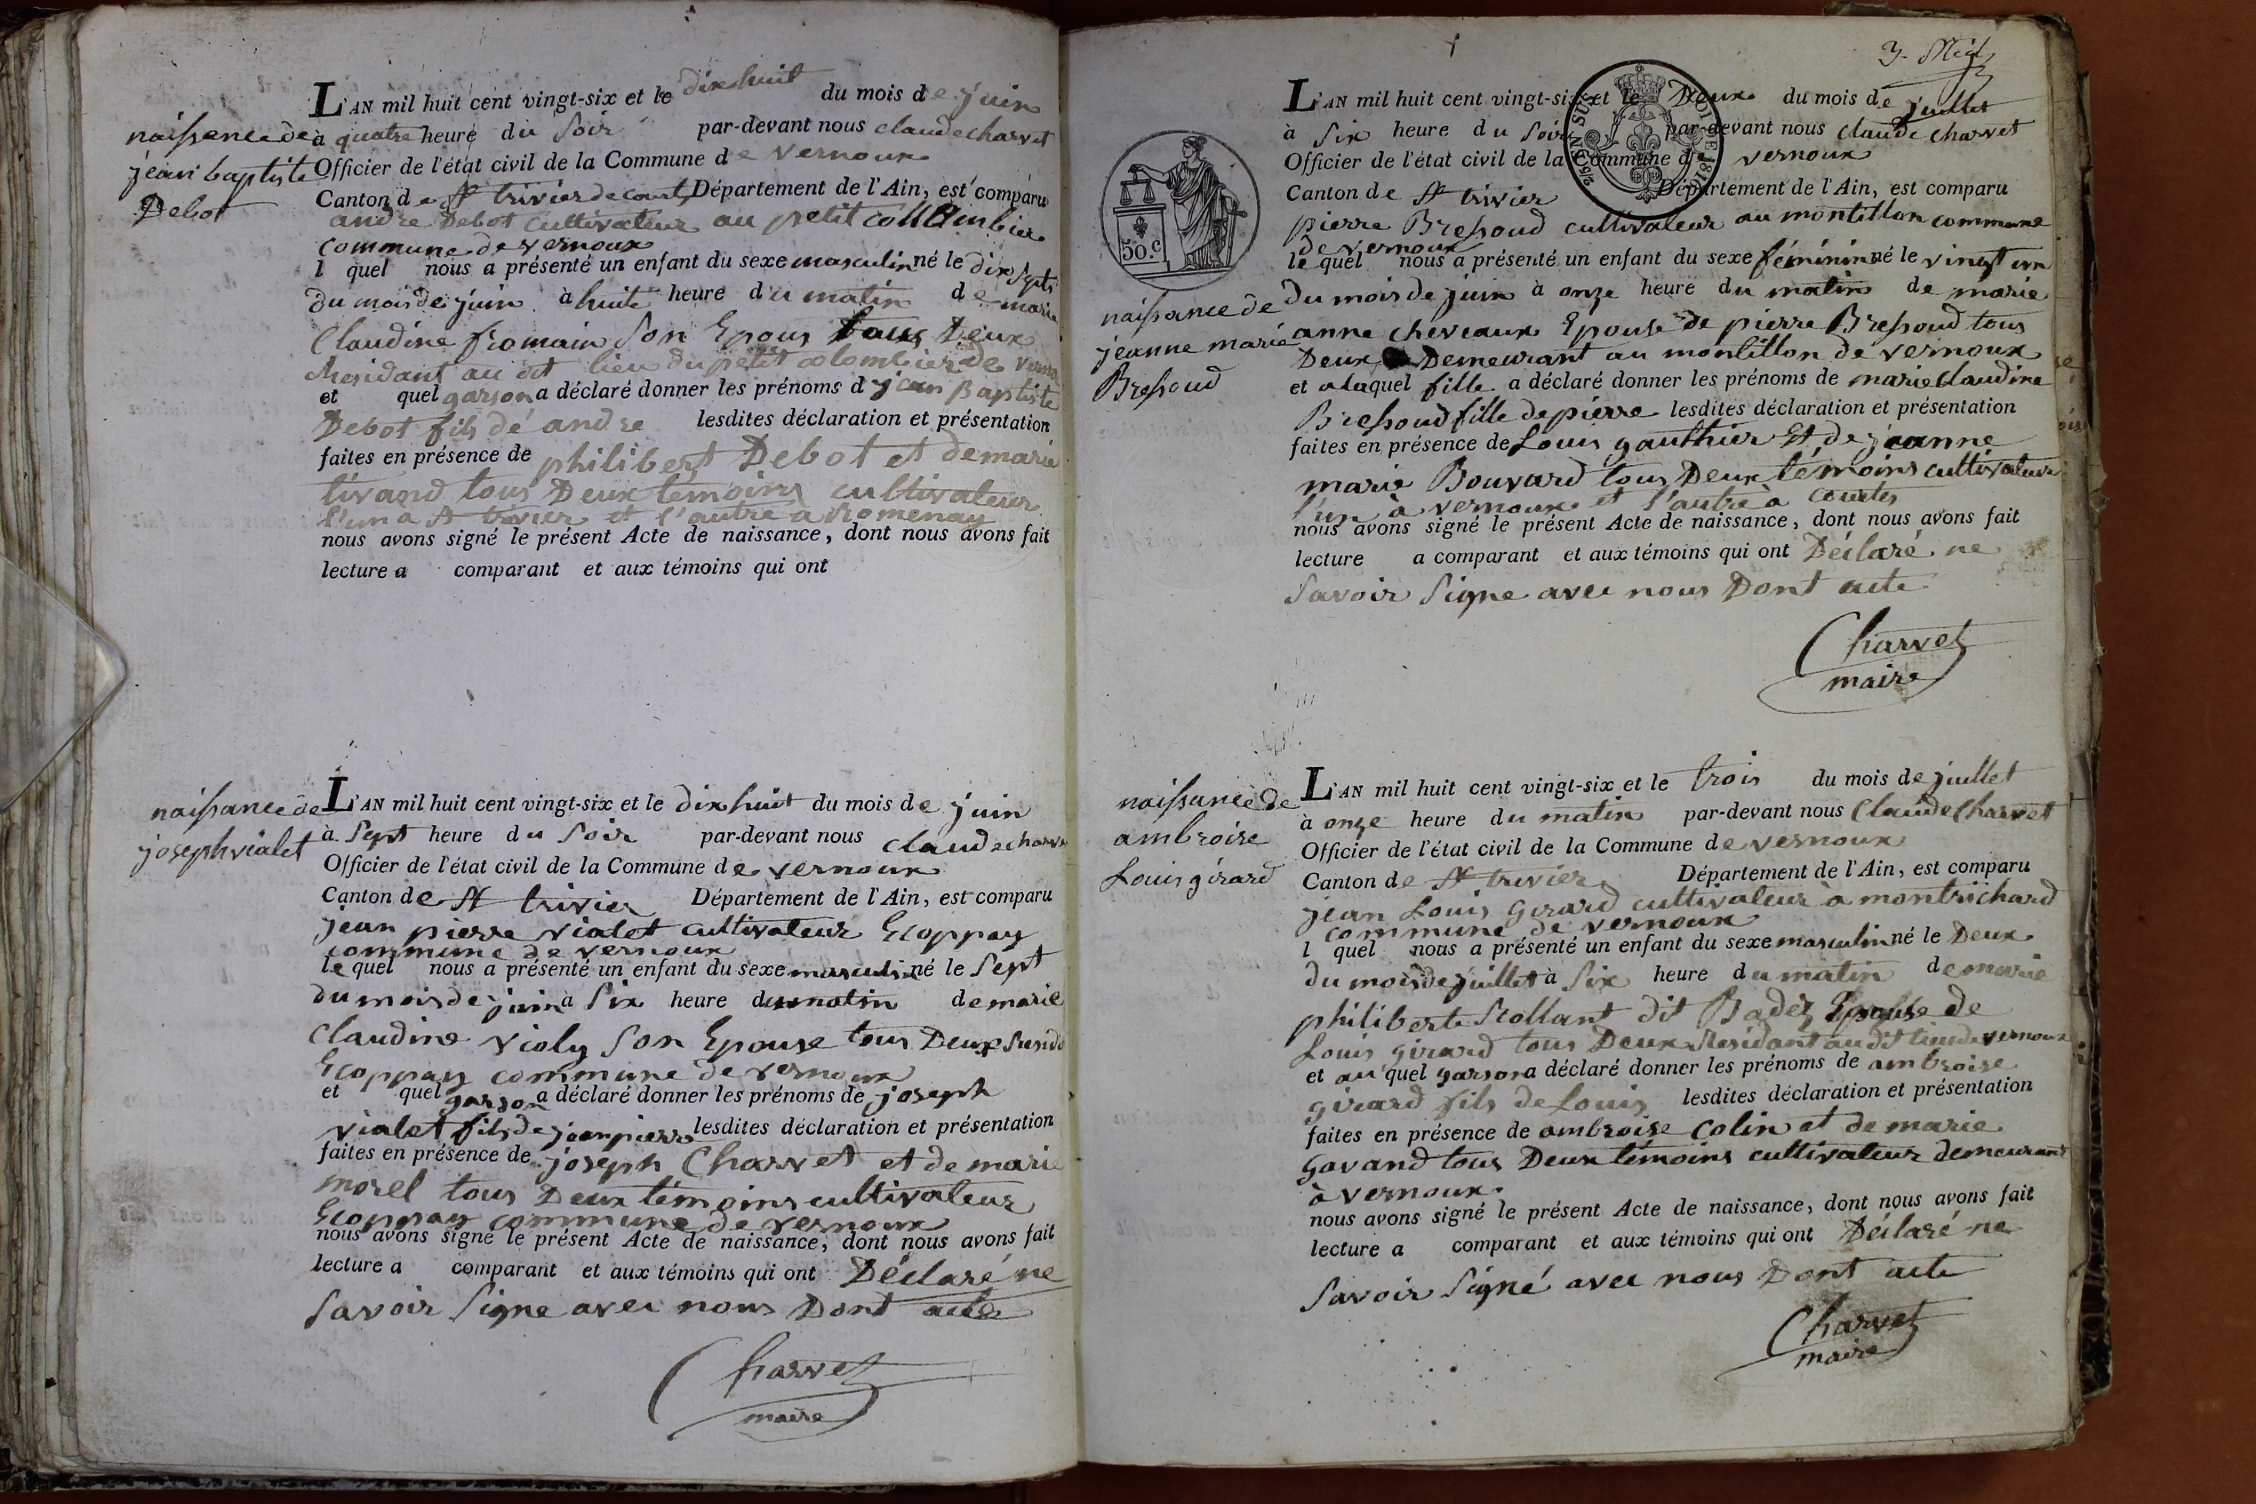 naissance de
jean baptiste
Debot
L'AN mil huit cent vingt-six et le dix huit du mois de juin
à quatre heure du soir par-devant nous claude charvet
Officier de l'état civil de la Commune de vernoux
Canton de St trivier de courtes Département de l'Ain, est comparu
andre Debot cultivateur au petit collombier
commune de vernoux
l quel nous a présenté un enfant du sexe masculin né le dix sept
du mois de juin à huite heure du matin de marie
Claudine fromain son Epous tous Deux
Residant au dit lieu du petit colombier de verno
et quel garson a déclaré donner les prénoms d jean Baptiste
Debot fils dé andre lesdites déclaration et présentation
faites en présence de philibert Debot et de marie
tivand tous Deux témoins cultivateur
l'un a St trivier et l'autre a Romenay
nous avons signé le présent Acte de naissance, dont nous avons fait
lecture a comparant et aux témoins qui ont
naissance de
joseph vialet
L'AN mil huit cent vingt-six et le dix huit du mois de juin
à sept heure du soir par-devant nous claude charve
Officier de l'état civil de la Commune de vernoux
Canton de St trivier Département de l'Ain, est comparu
jean pierre vialet cultivateur Ecoppay
commune de vernoux
le quel nous a présenté un enfant du sexe masculin né le sept
du mois de juin à six heure du matin de marie
Claudine violy son Epouse tous Deux
Ecoppay commune de vernoux
et quel garson a déclaré donner les prénoms de joseph
vialet fils de jean pierre lesdites déclaration et présentation
faites en présence de joseph Charvet et de marie
morel tous Deux témoins cultivateur
Ecoppay commune de vernoux
nous avons signé le présent Acte de naissance, dont nous avons fait
lecture a comparant et aux témoins qui ont Déclaré ne
savoir signe avec nous Dont acte
Charvet
maire
L'AN mil huit cent vingt-six et le Deux du mois de juillet
à six heure du soir par-devant nous claude charvet
Officier de l'état civil de la Commune de vernoux
Canton de St trivier Département de l'Ain, est comparu
50. c
pierre Bressoud cultivateur au montillon commune
de vernoux
le quel nous a présenté un enfant du sexe féminin né le vingt un
naissance de
jeanne marie
Bressoud
du mois de juin à onze heure du matin de marie
anne cheveaux Epouse de pierre Bressoud tous
Deux Demeurant au montillon de vernoux
et a laquel fille a déclaré donner les prénoms de marie claudine
Bressoud fille de pierre lesdites déclaration et présentation
faites en présence de Louis gauthier Et de jeanne
marie Bouvard tous Deux témoins cultivateur
l'un à vernoux et l'autre a courtes
nous avons signé le présent Acte de naissance, dont nous avons fait
lecture a comparant et aux témoins qui ont Déclaré ne
savoir signe avec nous Dont acte
Charvet
maire
naissance de
ambroise
Louis girard
L'AN mil huit cent vingt-six et le trois du mois de juillet
à onze heure du matin par-devant nous Claude Charvet
Officier de l'état civil de la Commune de vernoux
Canton de St trivier Département de l'Ain, est comparu
jean Louis girard cultivateur à montrichard
commune de vernoux
l quel nous a présenté un enfant du sexe masculin né le Deux
du mois de juillet à six heure du matin de marie
philiberte Stollant dit Badez Epouse de
Louis girard tous Deux Residant au dit lieu de vernoux
et au quel garson a déclaré donner les prénoms de ambroise
girard fils de Louis lesdites déclaration et présentation
faites en présence de ambroise Colin et de marie
Gavand tous Deux témoins cultivateur demeurant
à vernoux
nous avons signé le présent Acte de naissance, dont nous avons fait
lecture a comparant et aux témoins qui ont Déclaré ne
savoir signé avec nous Dont acte
Charvet
maire